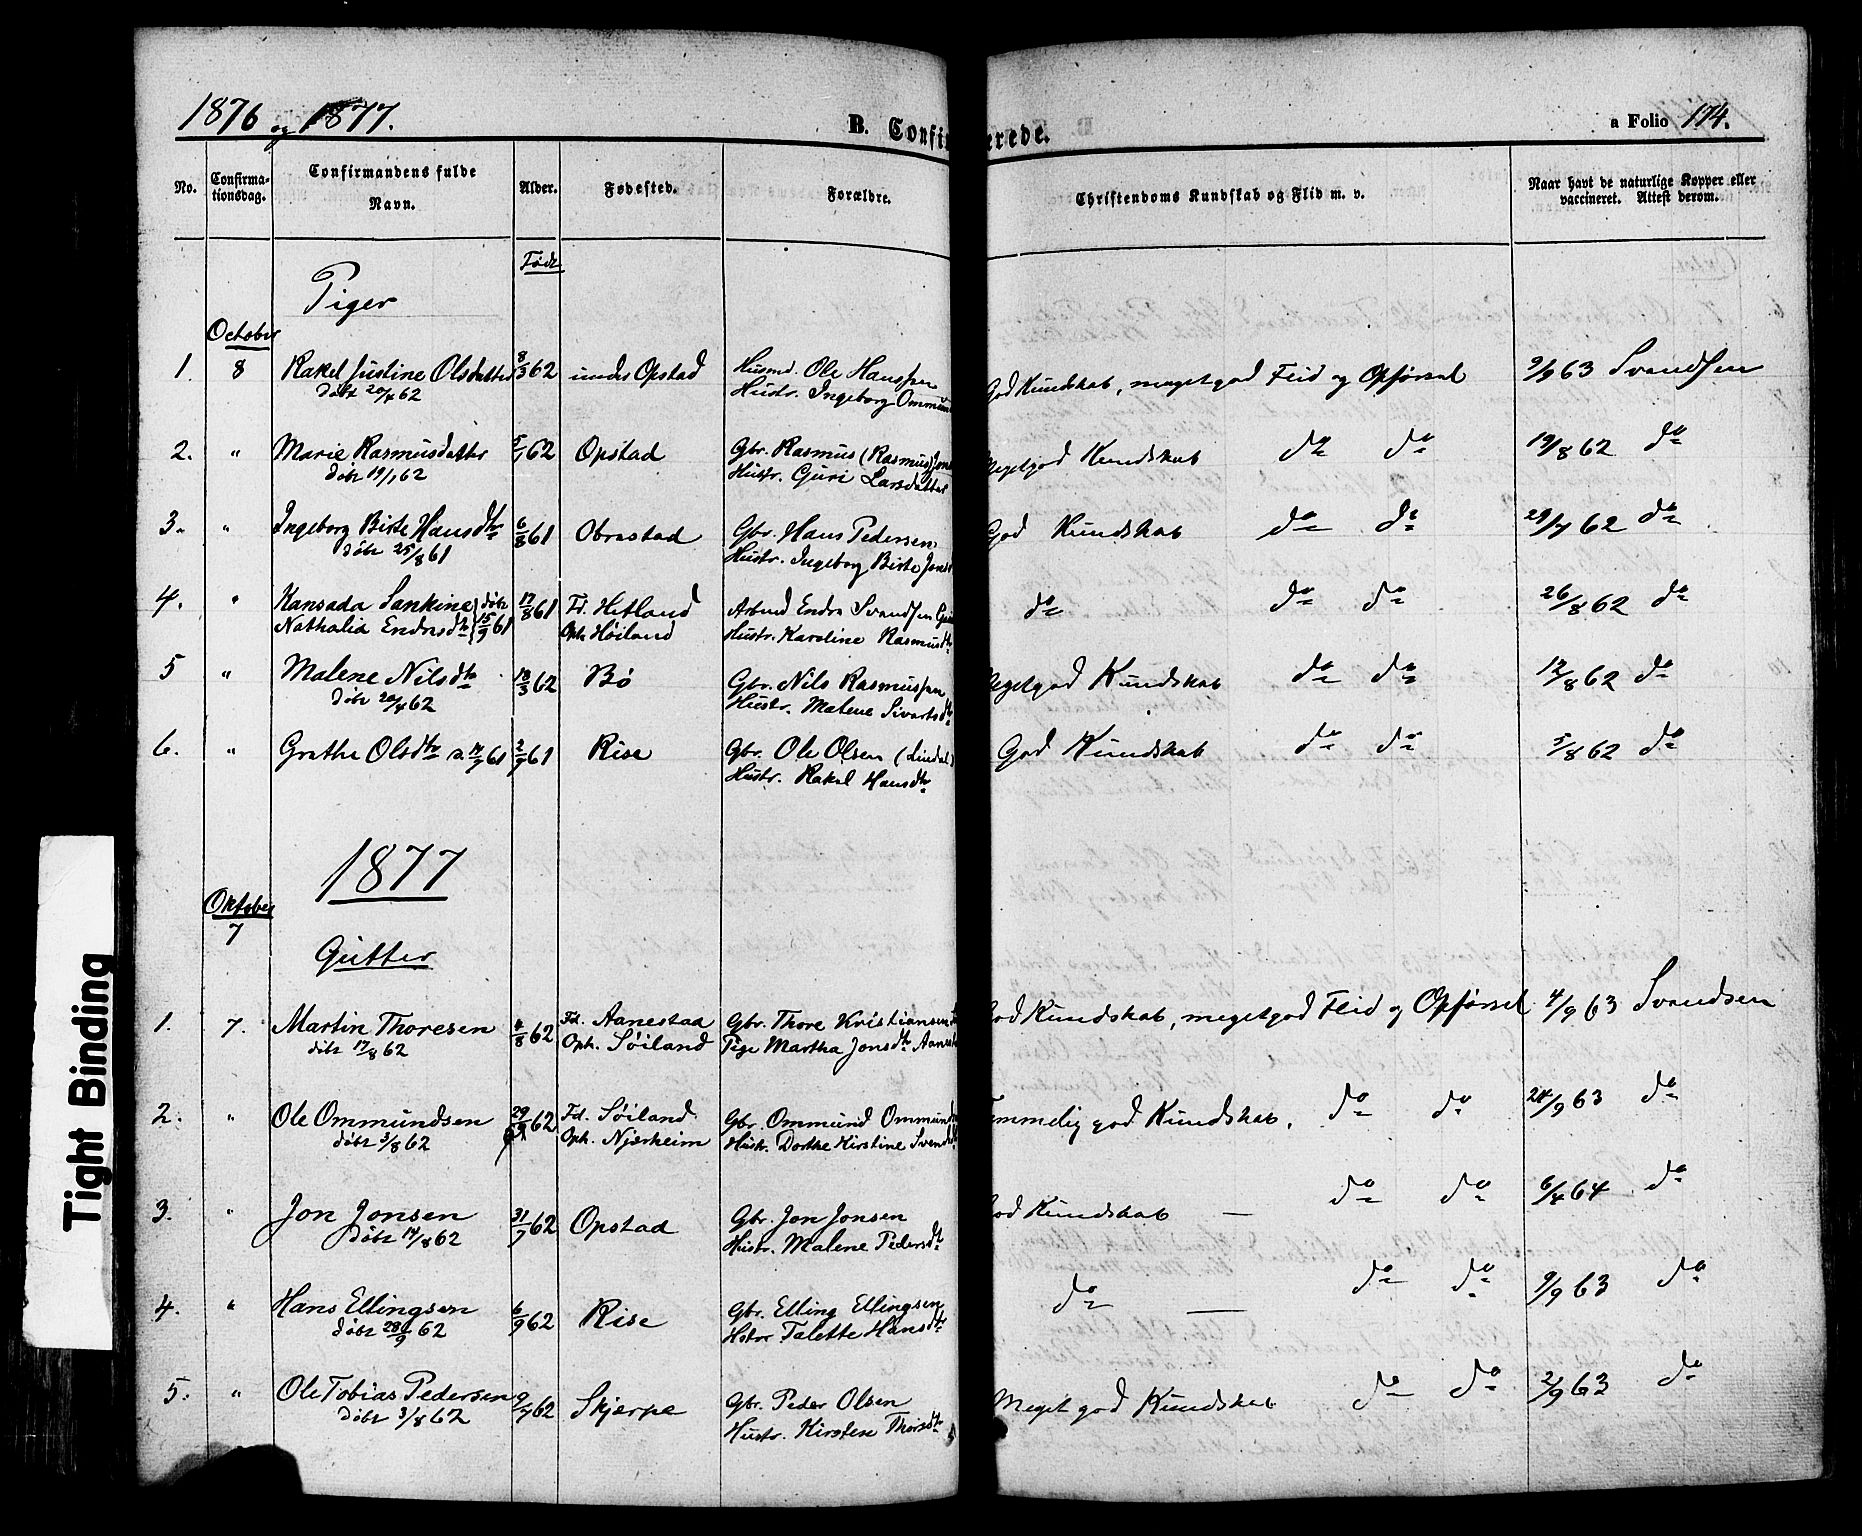 1876 og 1877.
B. Confirmerede.
a Folio 174.
No.
Confirmationsdag.
Confirmandens fulde Navn.
Alder.
Fødested.
Forældre.
Christendoms Kundskab og Flid m. v.
Naar havt de naturlige Kopper eller vaccineret. Attest derom.
Født
Piger
October
1. 8 Rakel Justine Olsdatter 8/3 62 under Opstad Husmd. Ole Hanssen God Kundskab, meget god Flid og Opførsel 9/9 63 Svendsen
Døbt 20/4 62 Hustr. Ingeborg Ommun
2. " Marie Rasmusdatter 5/1 62 Opstad Gbr. Rasmus (Rasmus) Jons Megetgod Kundskab do do 19/8 62 do
Døbt 19/1 62 Hustr. Guri Larsdatter
3. " Ingeborg Birte Hansdtr 6/8 61 Obrestad Gbr. Hans Pedersen God Kundskab do do 29/7 62 do
Døbt 25/8 61 Hustr. Ingeborg Birte Jons
4. " Kansada Sankine døbt 17/8 61 Fd. Hetland Arbmd Endre Svendsen do do do 26/8 62 do
Nathalia Endresdtr 15/9 61 Oph. Høiland Hustr. Karoline Rasmusdtr
5 " Malene Nilsdtr 18/3 62 Bø Gbr. Nils Rasmussen Megetgod Kundskab do do 12/8 62 do
Døbt 20/4 62 Hustr. Malene Sivertsdtr
6. " Grethe Olsdtr D. 14/7 61 2/7 61 Rise Gbr. Ole Olsen (Lindal) God Kundskab do do 5/8 62 do
Hustr. Rakel Hansdtr
1877
Oktober
7
Gutter
1. 7. Martin Thoresen 6/8 62 Fd. Aanestad Gbr. Thore Kristiansen God Kundskab, megetgod Flid og Opførsel 4/9 63 Svendsen
døbt 17/8 62 Oph. Søiland Pige Martha Jonsdtr Aanest
2. " Ole Ommundsen 29/ 62 Fd. Søiland Gbr. Ommund Ommunds Temmelig god Kundskab. do do 24/9 63 do
døbt 3/8 62 Oph. Njærheim Hustr. Dorthe Kirstine Svends
3. " Jon Jonsen 31/7 62 Opstad Gbr. Jon Jonsen God Kundskab — do do 6/4 64 do
Døbt 14/8 62 Hustr. Malene Pedersdtr
4. " Hans Ellingsen 6/9 62 Rise Gbr. Elling Ellingsen do — do do 9/9 63 do
døbt 28/9 62 Hstr Talette Hansdtr
5. " Ole Tobias Pedersen 9/7 62 Skjærpe Gbr. Peder Olsen Meget god Kundskab do do 2/9 63 do
døbt 3/8 62 Hustr. Kirsten Thorsdtr
Tight Binding